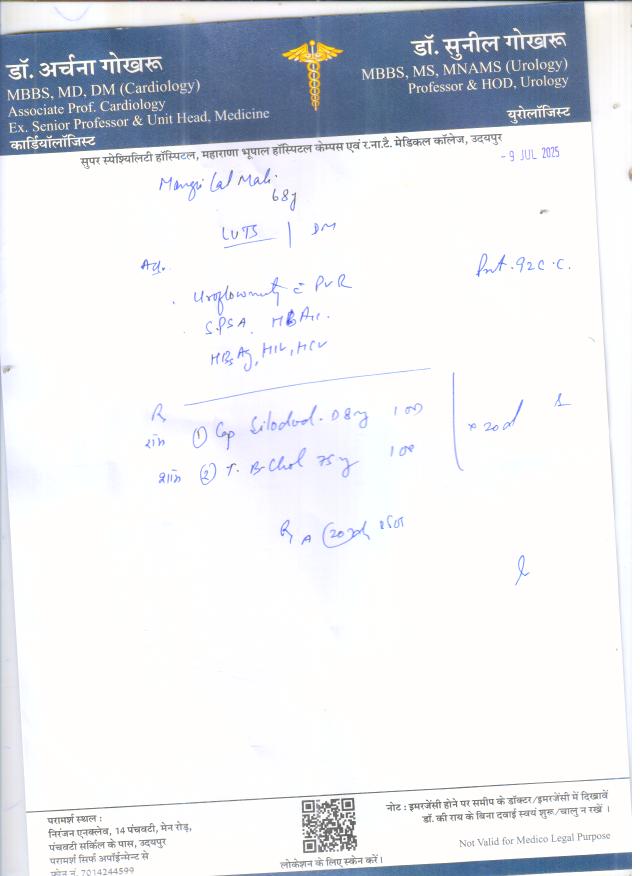 डॉ. अर्चना गोखरू
MBBS, MD, DM (Cardiology)
Associate Prof. Cardiology
Ex. Senior Professor & Unit Head, Medicine
कार्डियॉलॉजिस्ट
डॉ. सुनील गोखरू
MBBS, MS, MNAMS (Urology)
Professor & HOD, Urology
युरोलॉजिस्ट
सुपर स्पेश्यिलिटी हॉस्पिटल, महाराणा भूपाल हॉस्पिटल केम्पस एवं र.ना.टै. मेडिकल कॉलेज, उदयपुर
- 9 JUL 2025
Lal Mali
68y
LUTS | DM
Adv.
Uroflowmetry c PVR
S.PSA, HbA1c.
HBsAg, HIV, HCV
92 C.C.
Rx
① Cap Silodal-D 8mg
② T. B-Chol 75mg
x 20d
परामर्श स्थल :
निरंजन एनक्लेव, 14 पंचवटी, मेन रोड़,
पंचवटी सर्किल के पास, उदयपुर
परामर्श सिर्फ अपॉईन्मेन्ट से
फोन नं. 7014244599
लोकेशन के लिए स्केन करें।
नोट : इमरजेंसी होने पर समीप के डॉक्टर/इमरजेंसी में दिखावें
डॉ. की राय के बिना दवाई स्वयं शुरू/चालु न रखें ।
Not Valid for Medico Legal Purpose